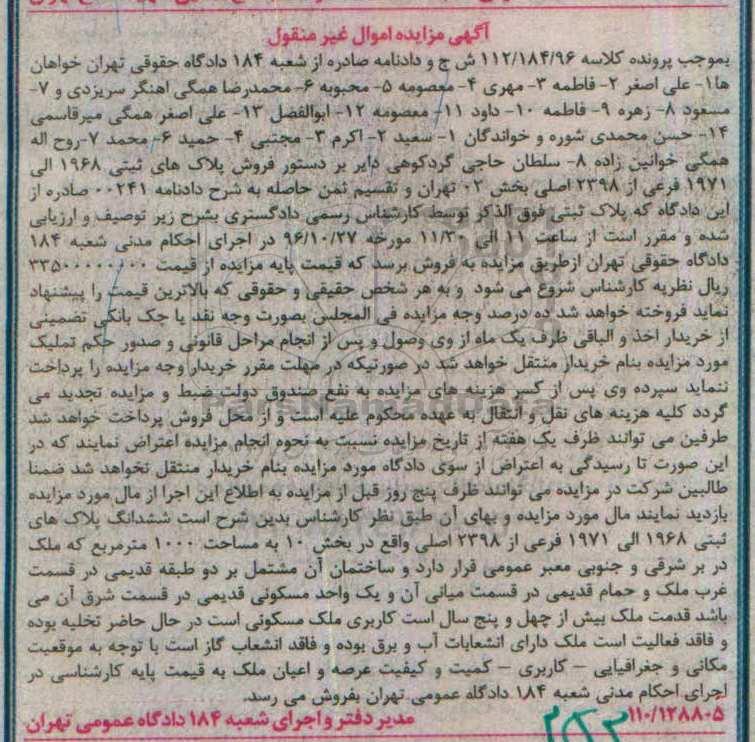 آگهی مزایده اموال غیر منقول
بموجب پرونده کلاسه ۱۱۲/۱۸۴/۹۶ ش ج و دادنامه صادره از شعبه ۱۸۴ دادگاه حقوقی تهران خواهان
ها۱- علی اصغر ۲- فاطمه ۳- مهری ۴- معصومه ۵- محبوبه ۶- محمدرضا همگی اهنگر سریزدی و ۷-
مسعود ۸- زهره ۹- فاطمه ۱۰- داود ۱۱- معصومه ۱۲- ابوالفضل ۱۳- علی اصغر همگی میرقاسمی
۱۴- حسن محمدی شوره و خواندگان ۱- سعید ۲- اکرم ۳- مجتبی ۴- حمید ۶- محمد ۷-روح اله
همگی خوانین زاده ۸- سلطان حاجی گردکوهی دایر بر دستور فروش پلاک های ثبتی ۱۹۶۸ الی
۱۹۷۱ فرعی از ۲۳۹۸ اصلی بخش ۰۲ تهران و تقسیم ثمن حاصله به شرح دادنامه ۰۰۲۴۱ صادره از
این دادگاه که پلاک ثبتی فوق الذکر توسط کارشناس رسمی دادگستری بشرح زیر توصیف و ارزیابی
شده و مقرر است از ساعت ۱۱ الی ۱۱/۳۰ مورخه ۹۶/۱۰/۲۷ در اجرای احکام مدنی شعبه ۱۸۴
دادگاه حقوقی تهران ازطریق مزایده به فروش برسد که قیمت پایه مزایده از قیمت
ریال نظریه کارشناس شروع می شود و به هر شخص حقیقی و حقوقی که بالاترین قیمت را پیشنهاد
نماید فروخته خواهد شد ده درصد وجه مزایده فی المجلس بصورت وجه نقد یا چک بانکی تضمینی
از خریدار اخذ و الباقی ظرف یک ماه از وی وصول و پس از انجام مراحل قانونی و صدور حکم تملیک
مورد مزایده بنام خریدار منتقل خواهد شد در صورتیکه در مهلت مقرر خریدار وجه مزایده را پرداخت
ننماید سپرده وی پس از کسر هزینه های مزایده به نفع صندوق دولت ضبط و مزایده تجدید می
گردد کلیه هزینه های نقل و انتقال به عهده محکوم علیه است و از محل فروش پرداخت خواهد شد
طرفین می توانند ظرف یک هفته از تاریخ مزایده نسبت به نحوه انجام مزایده اعتراض نمایند که در
این صورت تا رسیدگی به اعتراض از سوی دادگاه مورد مزایده بنام خریدار منتقل نخواهد شد ضمنا
طالبین شرکت در مزایده می توانند ظرف پنج روز قبل از مزایده به اطلاع این اجرا از مال مورد مزایده
بازدید نمایند مال مورد مزایده و بهای آن طبق نظر کارشناس بدین شرح است ششدانگ پلاک های
ثبتی ۱۹۶۸ الی ۱۹۷۱ فرعی از ۲۳۹۸ اصلی واقع در بخش ۱۰ به مساحت ۱۰۰۰ مترمربع که ملک
در بر شرقی و جنوبی معبر عمومی قرار دارد و ساختمان آن مشتمل بر دو طبقه قدیمی در قسمت
غرب ملک و حمام قدیمی در قسمت میانی آن و یک واحد مسکونی قدیمی در قسمت شرق آن می
باشد قدمت ملک بیش از چهل و پنج سال است کاربری ملک مسکونی است در حال حاضر تخلیه بوده
و فاقد فعالیت است ملک دارای انشعابات آب و برق بوده و فاقد انشعاب گاز است با توجه به موقعیت
مکانی و جغرافیایی – کاربری – کمیت و کیفیت عرصه و اعیان ملک به قیمت پایه کارشناسی در
اجرای احکام مدنی شعبه ۱۸۴ دادگاه عمومی تهران بفروش می رسد.
۱۱۰/۱۲۸۸۰۵ مدیر دفتر و اجرای شعبه ۱۸۴ دادگاه عمومی تهران